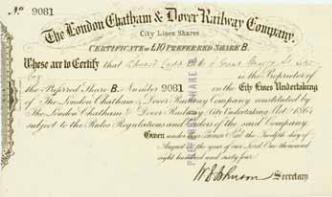 No 9081
The London Chatham & Dover Railway Company.
City Lines Shares
CERTIFICATE of £10 PREFERRED SHARE B.
These are to Certify that
is the Proprietor of
the Preferred Share B. Number 9081 on the City Lines Undertaking
of The London Chatham & Dover Railway Company constituted by
The London Chatham & Dover Railway (City Undertaking) Act 1864
subject to the Rules Regulations and Orders of the said Company
Given under our Common Seal the Twelfth day of
August in the year of our Lord One thousand
eight hundred and sixty four
Secretary
SHARE